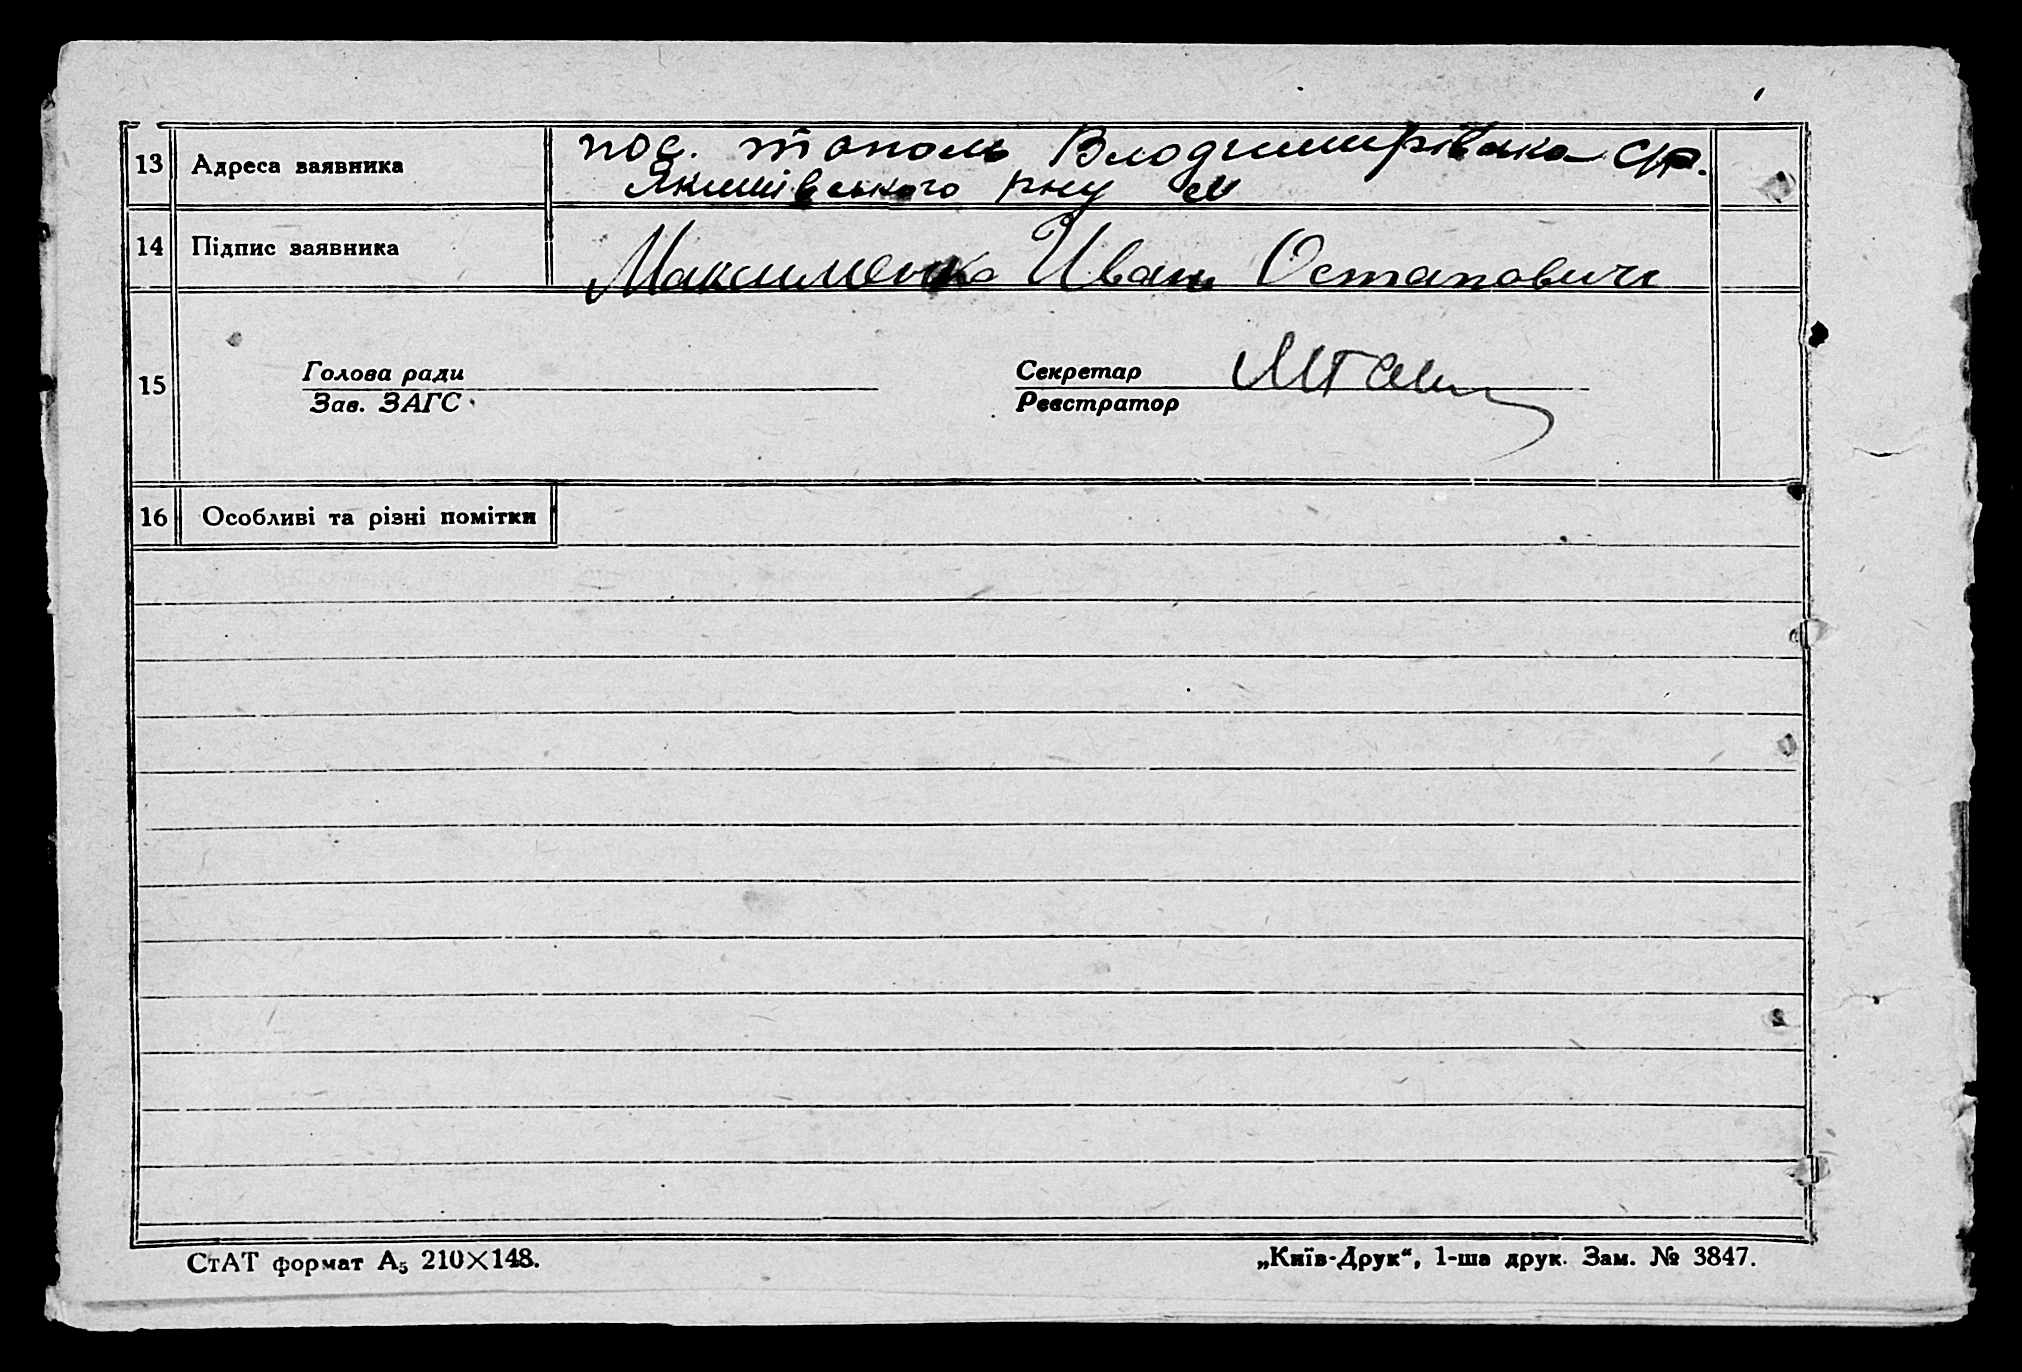 13 Адреса заявника пос. тополь Володимирівська с/р.
Якимівського р-ну
14 Підпис заявника Максименко Иван Остапович
15 Голова ради Секретар
Зав. ЗАГС Реєстратор
16 Особливі та різні помітки
СтАТ формат А5 210×148. „Київ-Друк“, 1-ша друк. Зам. № 3847.